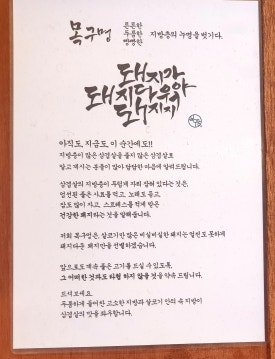 목구멍 튼튼한 두툼한 빵빵한 지방층의 누명을 벗기다.
돼지가
돼지다우야
돼지지
아직도, 지금도, 이 순간에도!!
지방층이 많은 삼겹살을 좋지 않은 삼겹살로
알고 계시는 분들이 많아 답답한 마음에 알려드립니다.
삼겹살의 지방층이 두텁게 자리 잡혀 있다는 것은,
엄선된 좋은 사료를 먹고, 노래도 듣고,
잠도 많이 자고, 스트레스를 적게 받은
건강한 돼지라는 것을 말해줍니다.
저희 목구멍은, 살코기만 많은 비실비실한 돼지는 얼씬도 못하게
돼지다운 돼지만을 선별하겠습니다.
앞으로도 계속 좋은 고기를 드실 수 있도록,
그 어떠한 것과도 타협 하지 않을 것을 약속 드립니다.
드셔보세요.
두툼하게 들어찬 고소한 지방과 살코기 안의 속 지방이
삼겹살의 맛을 좌우합니다.